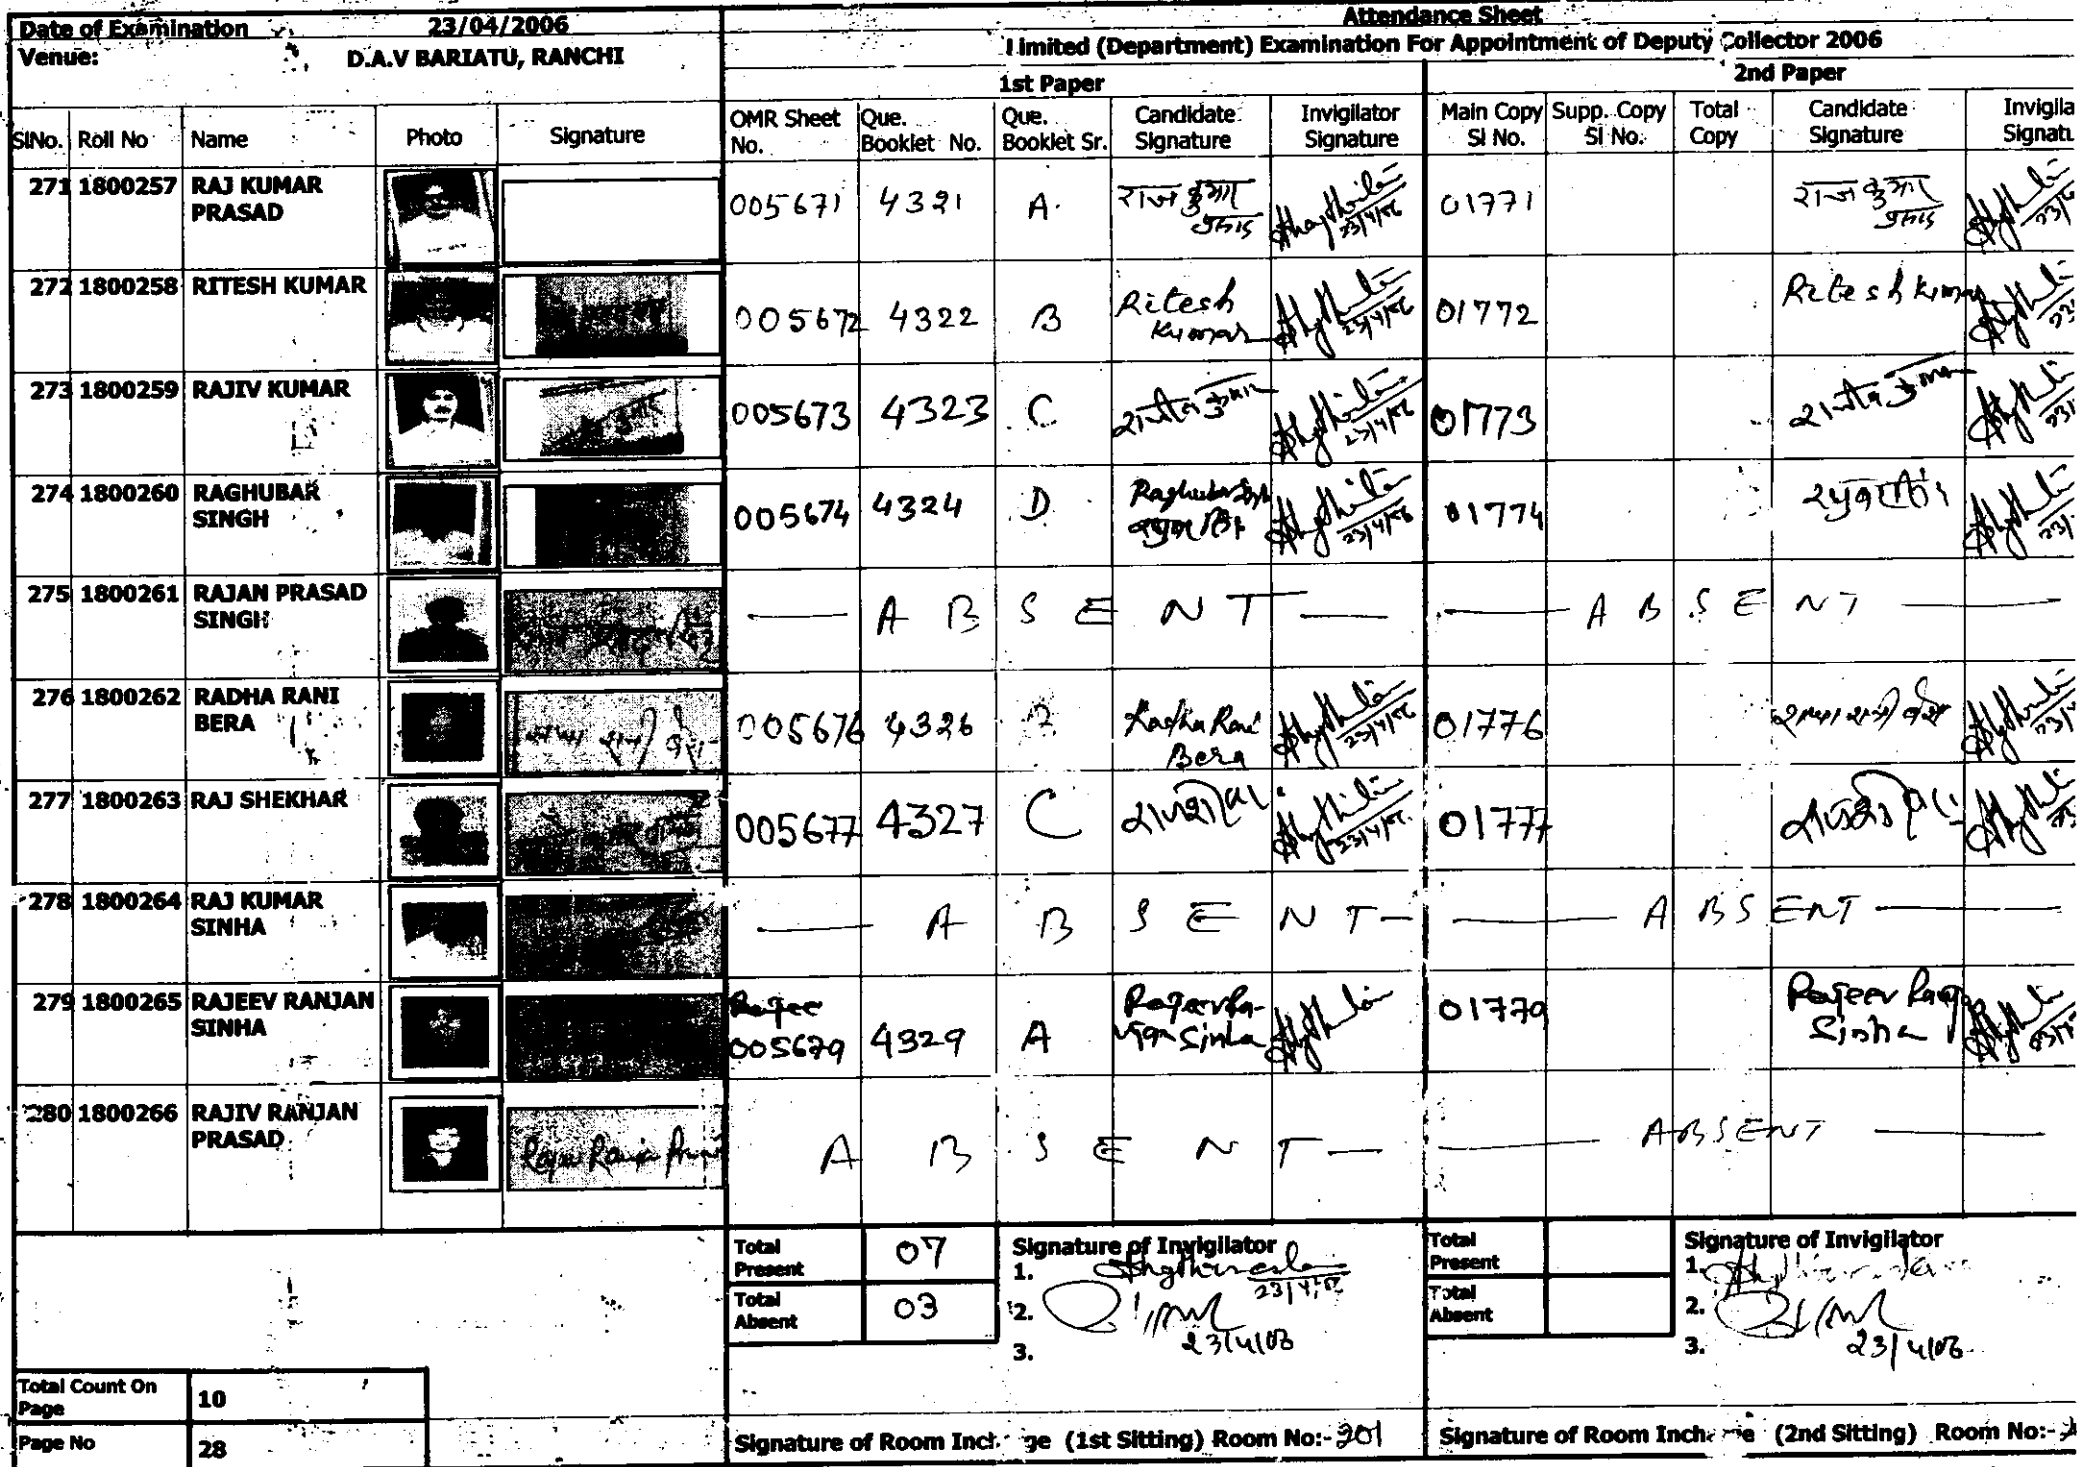 Attendance Sheet
Date of Examination 23/04/2006
Limited (Department) Examination For Appointment of Deputy Collector 2006
Venue: D.A.V BARIATU, RANCHI
1st Paper 2nd Paper
SlNo. Roll No Name Photo Signature OMR Sheet No. Que. Booklet No. Que. Booklet Sr. Candidate Signature Invigilator Signature Main Copy Sl No. Supp. Copy Sl No. Total Copy Candidate Signature Invigila Signatu
271 1800257 RAJ KUMAR PRASAD 005671 4321 A. राज कुमार प्रसाद 23/4/06 01771 राज कुमार प्रसाद
272 1800258 RITESH KUMAR 005672 4322 B Ritesh Kumar 23/4/06 01772 Ritesh Kumar
273 1800259 RAJIV KUMAR 005673 4323 C राजीव कुमार 23/4/06 01773 राजीव कुमार
274 1800260 RAGHUBAR SINGH 005674 4324 D Raghubar Singh 23/4/06 01774
275 1800261 RAJAN PRASAD SINGH ABSENT ABSENT
276 1800262 RADHA RANI BERA 005676 4326 Radha Rani Bera 23/4/06 01776 राधा रानी बेरा
277 1800263 RAJ SHEKHAR 005677 4327 C राजशेखर 23/4/06 01777 राजशेखर
278 1800264 RAJ KUMAR SINHA ABSENT ABSENT
279 1800265 RAJEEV RANJAN SINHA 005679 4329 A Rajeev Ranjan Sinha 01779 Rajeev Ranjan Sinha
280 1800266 RAJIV RANJAN PRASAD ABSENT ABSENT
Total Present 07 Signature of Invigilator Total Present Signature of Invigilator
1. 23/4/06 1.
Total Absent 03 2. 23/4/06 Total Absent 2. 23/4/06
3. 3.
Total Count On Page 10
Page No 28 Signature of Room Incharge (1st Sitting) Room No:- 201 Signature of Room Incharge (2nd Sitting) Room No:-